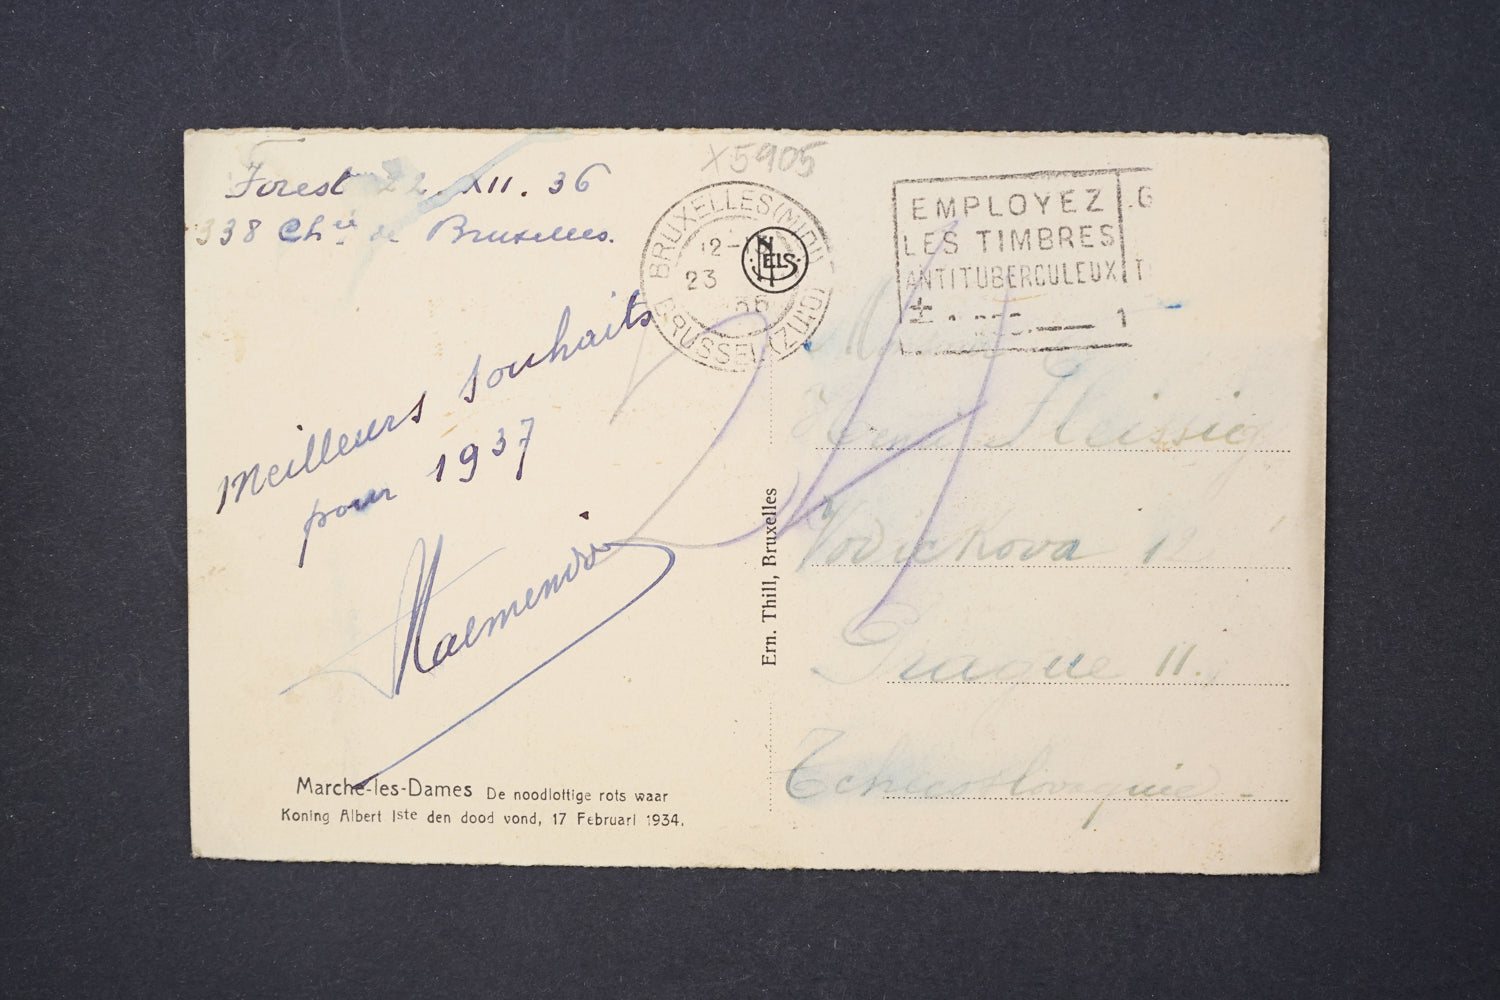 Forest 22. XII. 36
338 Ch.ée de Bruxelles.
Meilleurs souhaits
pour 1937
X5905
BRUXELLES (MIDI)
12-
23 36
BRUSSEL (ZUID)
NELS
EMPLOYEZ
LES TIMBRES
ANTITUBERCULEUX
1 DEC. — 1
G
T
Ern. Thill, Bruxelles
Henri Fleissig
Vodickova
Prague II.
Tchécoslovaquie -
Marche-les-Dames De noodlottige rots waar
Koning Albert Iste den dood vond, 17 Februari 1934.